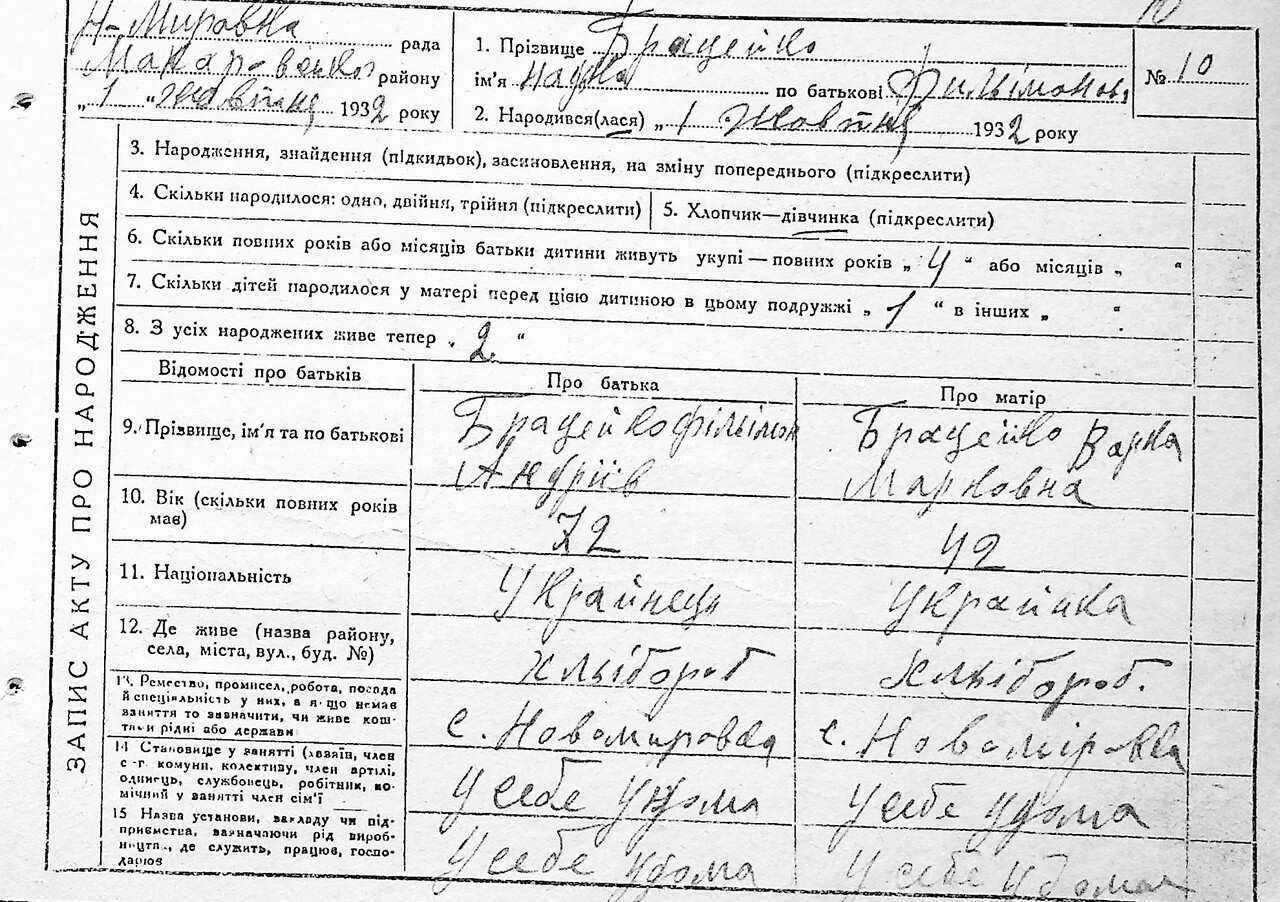 Н-Мировка рада
Макар-вского району
„1“ жовтня 1932 року
1. Прізвище Брацейко
ім'я Надка по батькові Фильімонов
2. Народився(лася) „1 жовтня 1932 року
№ 10
3. Народження, знайдення (підкидьок), засиновлення, на зміну попереднього (підкреслити)
4. Скільки народилося: одно, двійня, трійня (підкреслити) 5. Хлопчик—дівчинка (підкреслити)
6. Скільки повних років або місяців батьки дитини живуть укупі — повних років „ 4 “ або місяців „ “
7. Скільки дітей народилося у матері перед цією дитиною в цьому подружжі „ 1 “ в інших „ “
8. З усіх народжених живе тепер „ 2 “
ЗАПИС АКТУ ПРО НАРОДЖЕННЯ
Відомості про батьків Про батька Про матір
9. Прізвище, ім'я та по батькові Брацейко Фільімон Брацейко Варка
Андріїв Марковна
10. Вік (скільки повних років
має) 72 42
11. Національність Украйнець Украйнка
12. Де живе (назва району,
села, міста, вул., буд. №) хльібороб хльібороб.
13. Ремество, промисел, робота, посада
й спеціяльність у них, а якщо немає
заняття то зазначити, чи живе кош-
тами рідні або держави с. Новомировка с. Новоміровка
14 Становище у занятті (хазяїн, член
с.-г. комуни, колективу, член артілі,
одинець, службовець, робітник, по-
мічний у занятті член сім'ї у себе удома у себе удома
15 Назва установи, закладу чи під-
приємства, зазначаючи рід вироб-
ництва, де служить, працює, госпо-
дарює у себе удома у себе удома